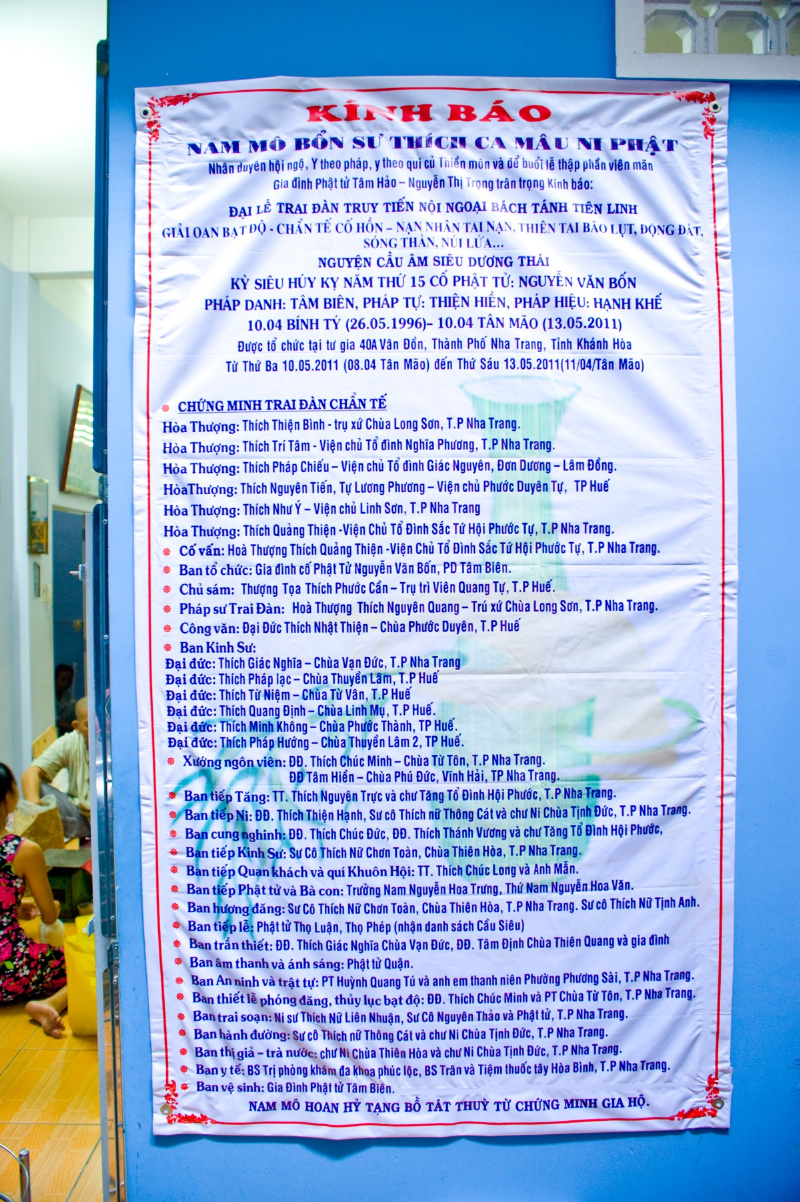 KÍNH BÁO
NAM MÔ BỔN SƯ THÍCH CA MÂU NI PHẬT
Nhân duyên hội ngộ, Y theo pháp, y theo qui củ Thiền môn và để buổi lễ thập phần viên mãn
Gia đình Phật tử Tâm Hảo – Nguyễn Thị Trọng trân trọng Kính báo:
ĐẠI LỄ TRAI ĐÀN TRUY TIẾN NỘI NGOẠI BÁCH TÁNH TIÊN LINH
GIẢI OAN BẠT ĐỘ - CHẨN TẾ CÔ HỒN – NẠN NHÂN TAI NẠN, THIÊN TAI BÃO LỤT, ĐỘNG ĐẤT,
SÓNG THẦN, NÚI LỬA...
NGUYỆN CẦU ÂM SIÊU DƯƠNG THÁI
KỲ SIÊU HÚY KỴ NĂM THỨ 15 CỐ PHẬT TỬ: NGUYỄN VĂN BỐN
PHÁP DANH: TÂM BIÊN, PHÁP TỰ: THIỆN HIỀN, PHÁP HIỆU: HẠNH KHẾ
10.04 BÍNH TÝ (26.05.1996)– 10.04 TÂN MÃO (13.05.2011)
Được tổ chức tại tư gia 40A Vân Đồn, Thành Phố Nha Trang, Tỉnh Khánh Hòa
Từ Thứ Ba 10.05.2011 (08.04 Tân Mão) đến Thứ Sáu 13.05.2011(11/04/Tân Mão)
CHỨNG MINH TRAI ĐÀN CHẨN TẾ
Hòa Thượng: Thích Thiện Bình - trụ xứ Chùa Long Sơn, T.P Nha Trang.
Hòa Thượng: Thích Trí Tâm - Viện chủ Tổ đình Nghĩa Phương, T.P Nha Trang.
Hòa Thượng: Thích Pháp Chiếu – Viện chủ Tổ đình Giác Nguyên, Đơn Dương – Lâm Đồng.
HòaThượng: Thích Nguyên Tiến, Tự Lương Phương – Viện chủ Phước Duyên Tự, TP Huế
Hòa Thượng: Thích Như Ý – Viện chủ Linh Sơn, T.P Nha Trang
Hòa Thượng: Thích Quảng Thiện -Viện Chủ Tổ Đình Sắc Tứ Hội Phước Tự, T.P Nha Trang.
Cố vấn: Hoà Thượng Thích Quảng Thiện -Viện Chủ Tổ Đình Sắc Tứ Hội Phước Tự, T.P Nha Trang.
Ban tổ chức: Gia đình cố Phật Tử Nguyễn Văn Bốn, PD Tâm Biên.
Chủ sám: Thượng Tọa Thích Phước Cẩn – Trụ trì Viên Quang Tự, T.P Huế.
Pháp sư Trai Đàn: Hoà Thượng Thích Nguyên Quang – Trú xứ Chùa Long Sơn, T.P Nha Trang.
Công văn: Đại Đức Thích Nhật Thiện – Chùa Phước Duyên, T.P Huế
Ban Kinh Sư:
Đại đức: Thích Giác Nghĩa – Chùa Vạn Đức, T.P Nha Trang
Đại đức: Thích Pháp lạc – Chùa Thuyền Lâm, T.P Huế
Đại đức: Thích Từ Niệm – Chùa Từ Vân, T.P Huế
Đại đức: Thích Quang Định – Chùa Linh Mụ, T.P Huế.
Đại đức: Thích Minh Không – Chùa Phước Thành, TP Huế.
Đại đức: Thích Pháp Hướng – Chùa Thuyền Lâm 2, TP Huế.
Xướng ngôn viên: ĐĐ. Thích Chúc Minh – Chùa Từ Tôn, T.P Nha Trang.
ĐĐ Tâm Hiền – Chùa Phú Đức, Vĩnh Hải, TP Nha Trang.
Ban tiếp Tăng: TT. Thích Nguyên Trực và chư Tăng Tổ Đình Hội Phước, T.P Nha Trang.
Ban tiếp Ni: ĐĐ. Thích Thiện Hạnh, Sư cô Thích nữ Thông Cát và chư Ni Chùa Tịnh Đức, T.P Nha Trang.
Ban cung nghinh: ĐĐ. Thích Chúc Đức, ĐĐ. Thích Thánh Vương và chư Tăng Tổ Đình Hội Phước,
Ban tiếp Kinh Sư: Sư Cô Thích Nữ Chơn Toàn, Chùa Thiên Hòa, T.P Nha Trang.
Ban tiếp Quan khách và quí Khuôn Hội: TT. Thích Chúc Long và Anh Mẫn.
Ban tiếp Phật tử và Bà con: Trưởng Nam Nguyễn Hoa Trưng, Thứ Nam Nguyễn Hoa Văn.
Ban hương đăng: Sư Cô Thích Nữ Chơn Toàn, Chùa Thiên Hòa, T.P Nha Trang. Sư cô Thích Nữ Tịnh Anh.
Ban tiếp lễ: Phật tử Thọ Luận, Thọ Phép (nhận danh sách Cầu Siêu)
Ban trần thiết: ĐĐ. Thích Giác Nghĩa Chùa Vạn Đức, ĐĐ. Tâm Định Chùa Thiên Quang và gia đình
Ban âm thanh và ánh sáng: Phật tử Quận.
Ban An ninh và trật tự: PT Huỳnh Quang Tú và anh em thanh niên Phường Phương Sài, T.P Nha Trang.
Ban thiết lễ phóng đăng, thủy lục bạt độ: ĐĐ. Thích Chúc Minh và PT Chùa Từ Tôn, T.P Nha Trang.
Ban trai soạn: Ni sư Thích Nữ Liên Nhuận, Sư Cô Nguyên Thảo và Phật tử, T.P Nha Trang.
Ban hành đường: Sư cô Thích nữ Thông Cát và chư Ni Chùa Tịnh Đức, T.P Nha Trang.
Ban thị giả – trà nước: chư Ni Chùa Thiên Hòa và chư Ni Chùa Tịnh Đức, T.P Nha Trang.
Ban y tế: BS Trị phòng khám đa khoa phúc lộc, BS Trân và Tiệm thuốc tây Hòa Bình, T.P Nha Trang.
Ban vệ sinh: Gia Đình Phật tử Tâm Biên.
NAM MÔ HOAN HỶ TẠNG BỒ TÁT THUỲ TỪ CHỨNG MINH GIA HỘ.